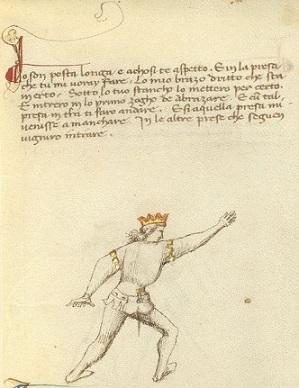 Io son posta longa e achosi te aspetto. E in la presa
che tu mi voray fare. Lo mio brazo dritto che sta
in erto. Sotto lo tuo stancho lo mettero per certo.
E intrero in lo primo zogho de abrazare. E cum tal
presa in terra ti faro andare. E si aquella presa mi
venisse a manchare. In le altre prese che seguen
vigniro intrare.